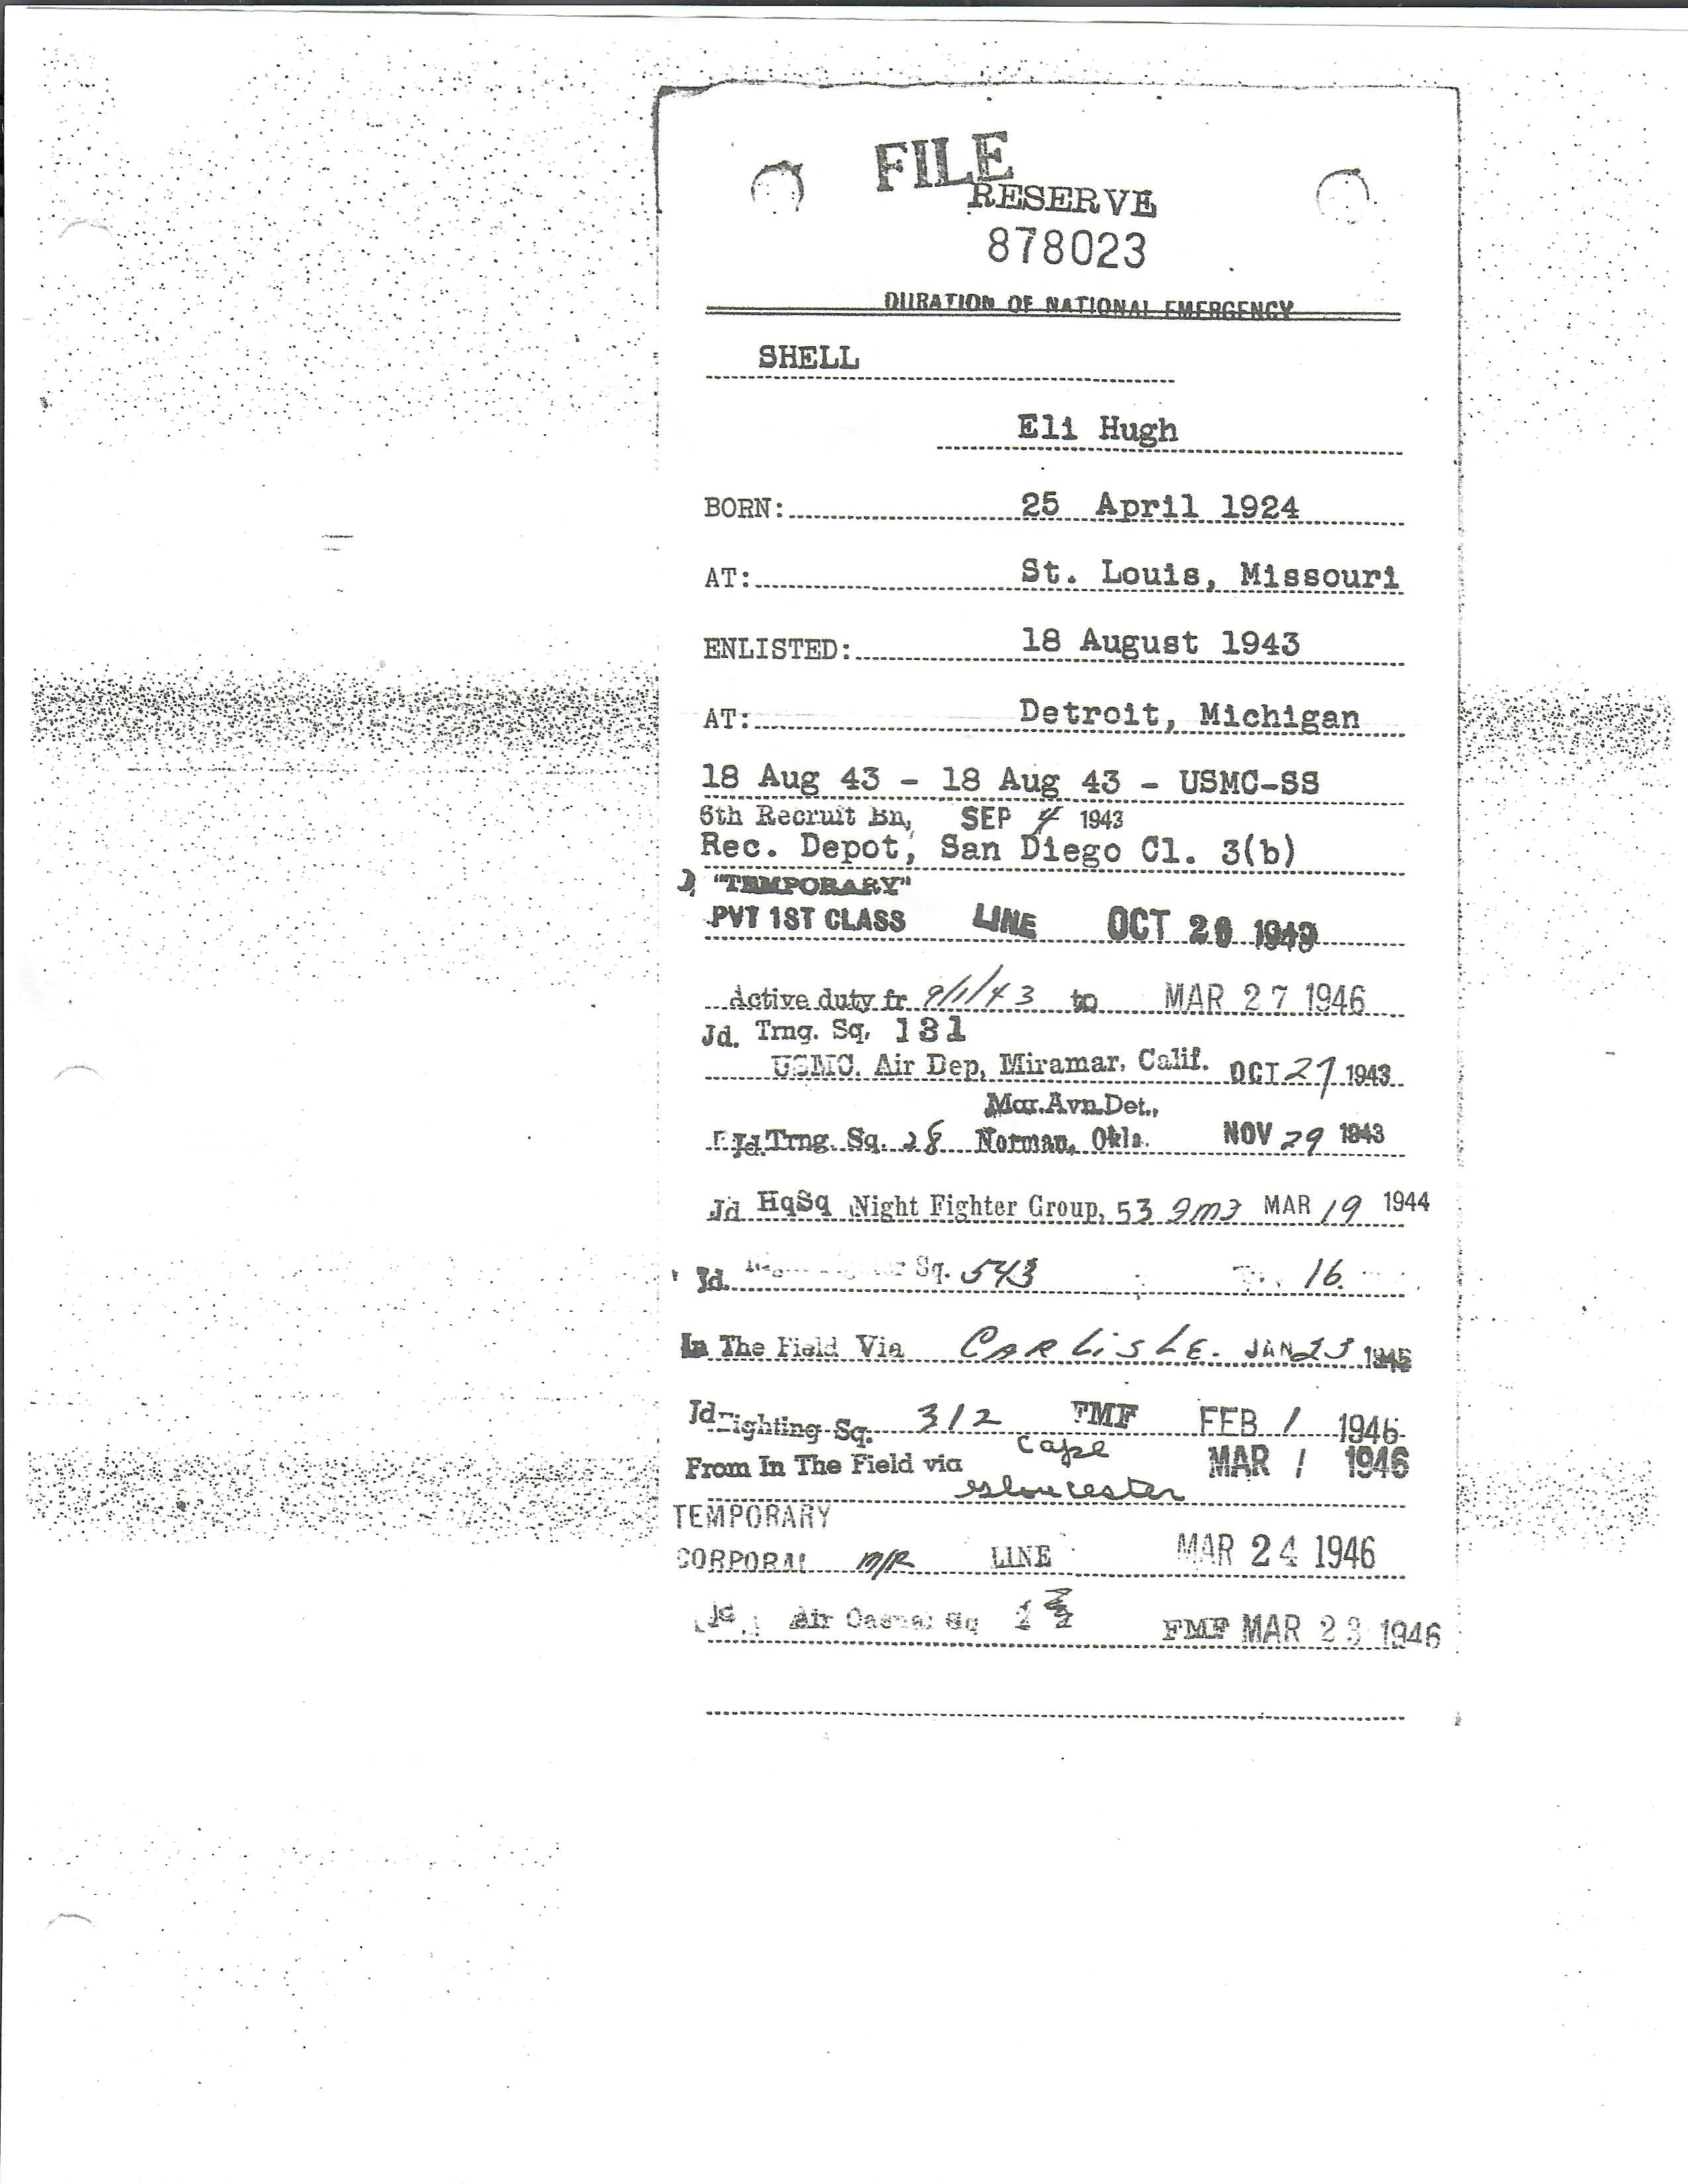 FILE
RESERVE
878023
DURATION OF NATIONAL EMERGENCY
SHELL
Eli Hugh
BORN: 25 April 1924
AT: St. Louis, Missouri
ENLISTED: 18 August 1943
AT: Detroit, Michigan
18 Aug 43 - 18 Aug 43 - USMC-SS
6th Recruit Bn, SEP 4 1943
Rec. Depot, San Diego Cl. 3(b)
"TEMPORARY"
PVT 1ST CLASS LINE OCT 28 1943
Active duty fr 9/1/43 to MAR 27 1946
Jd. Trng. Sq, 131
USMC. Air Dep, Miramar, Calif. OCT 27 1943
Mar.Avn.Det.,
Jd. Trng. Sq. 28 Norman, Okla. NOV 29 1943
Jd HqSq Night Fighter Group, 53 MAR 19 1944
Jd. Sq. 543 16
In The Field Via CARLISLE. JAN 23 1945
Jd Fighting Sq. 312 FMF FEB 1 1945
Cape
From In The Field via MAR 1 1946
Gloucester
TEMPORARY
CORPORAL M/R LINE MAR 24 1946
Air Casual Sq FMF MAR 23 1946